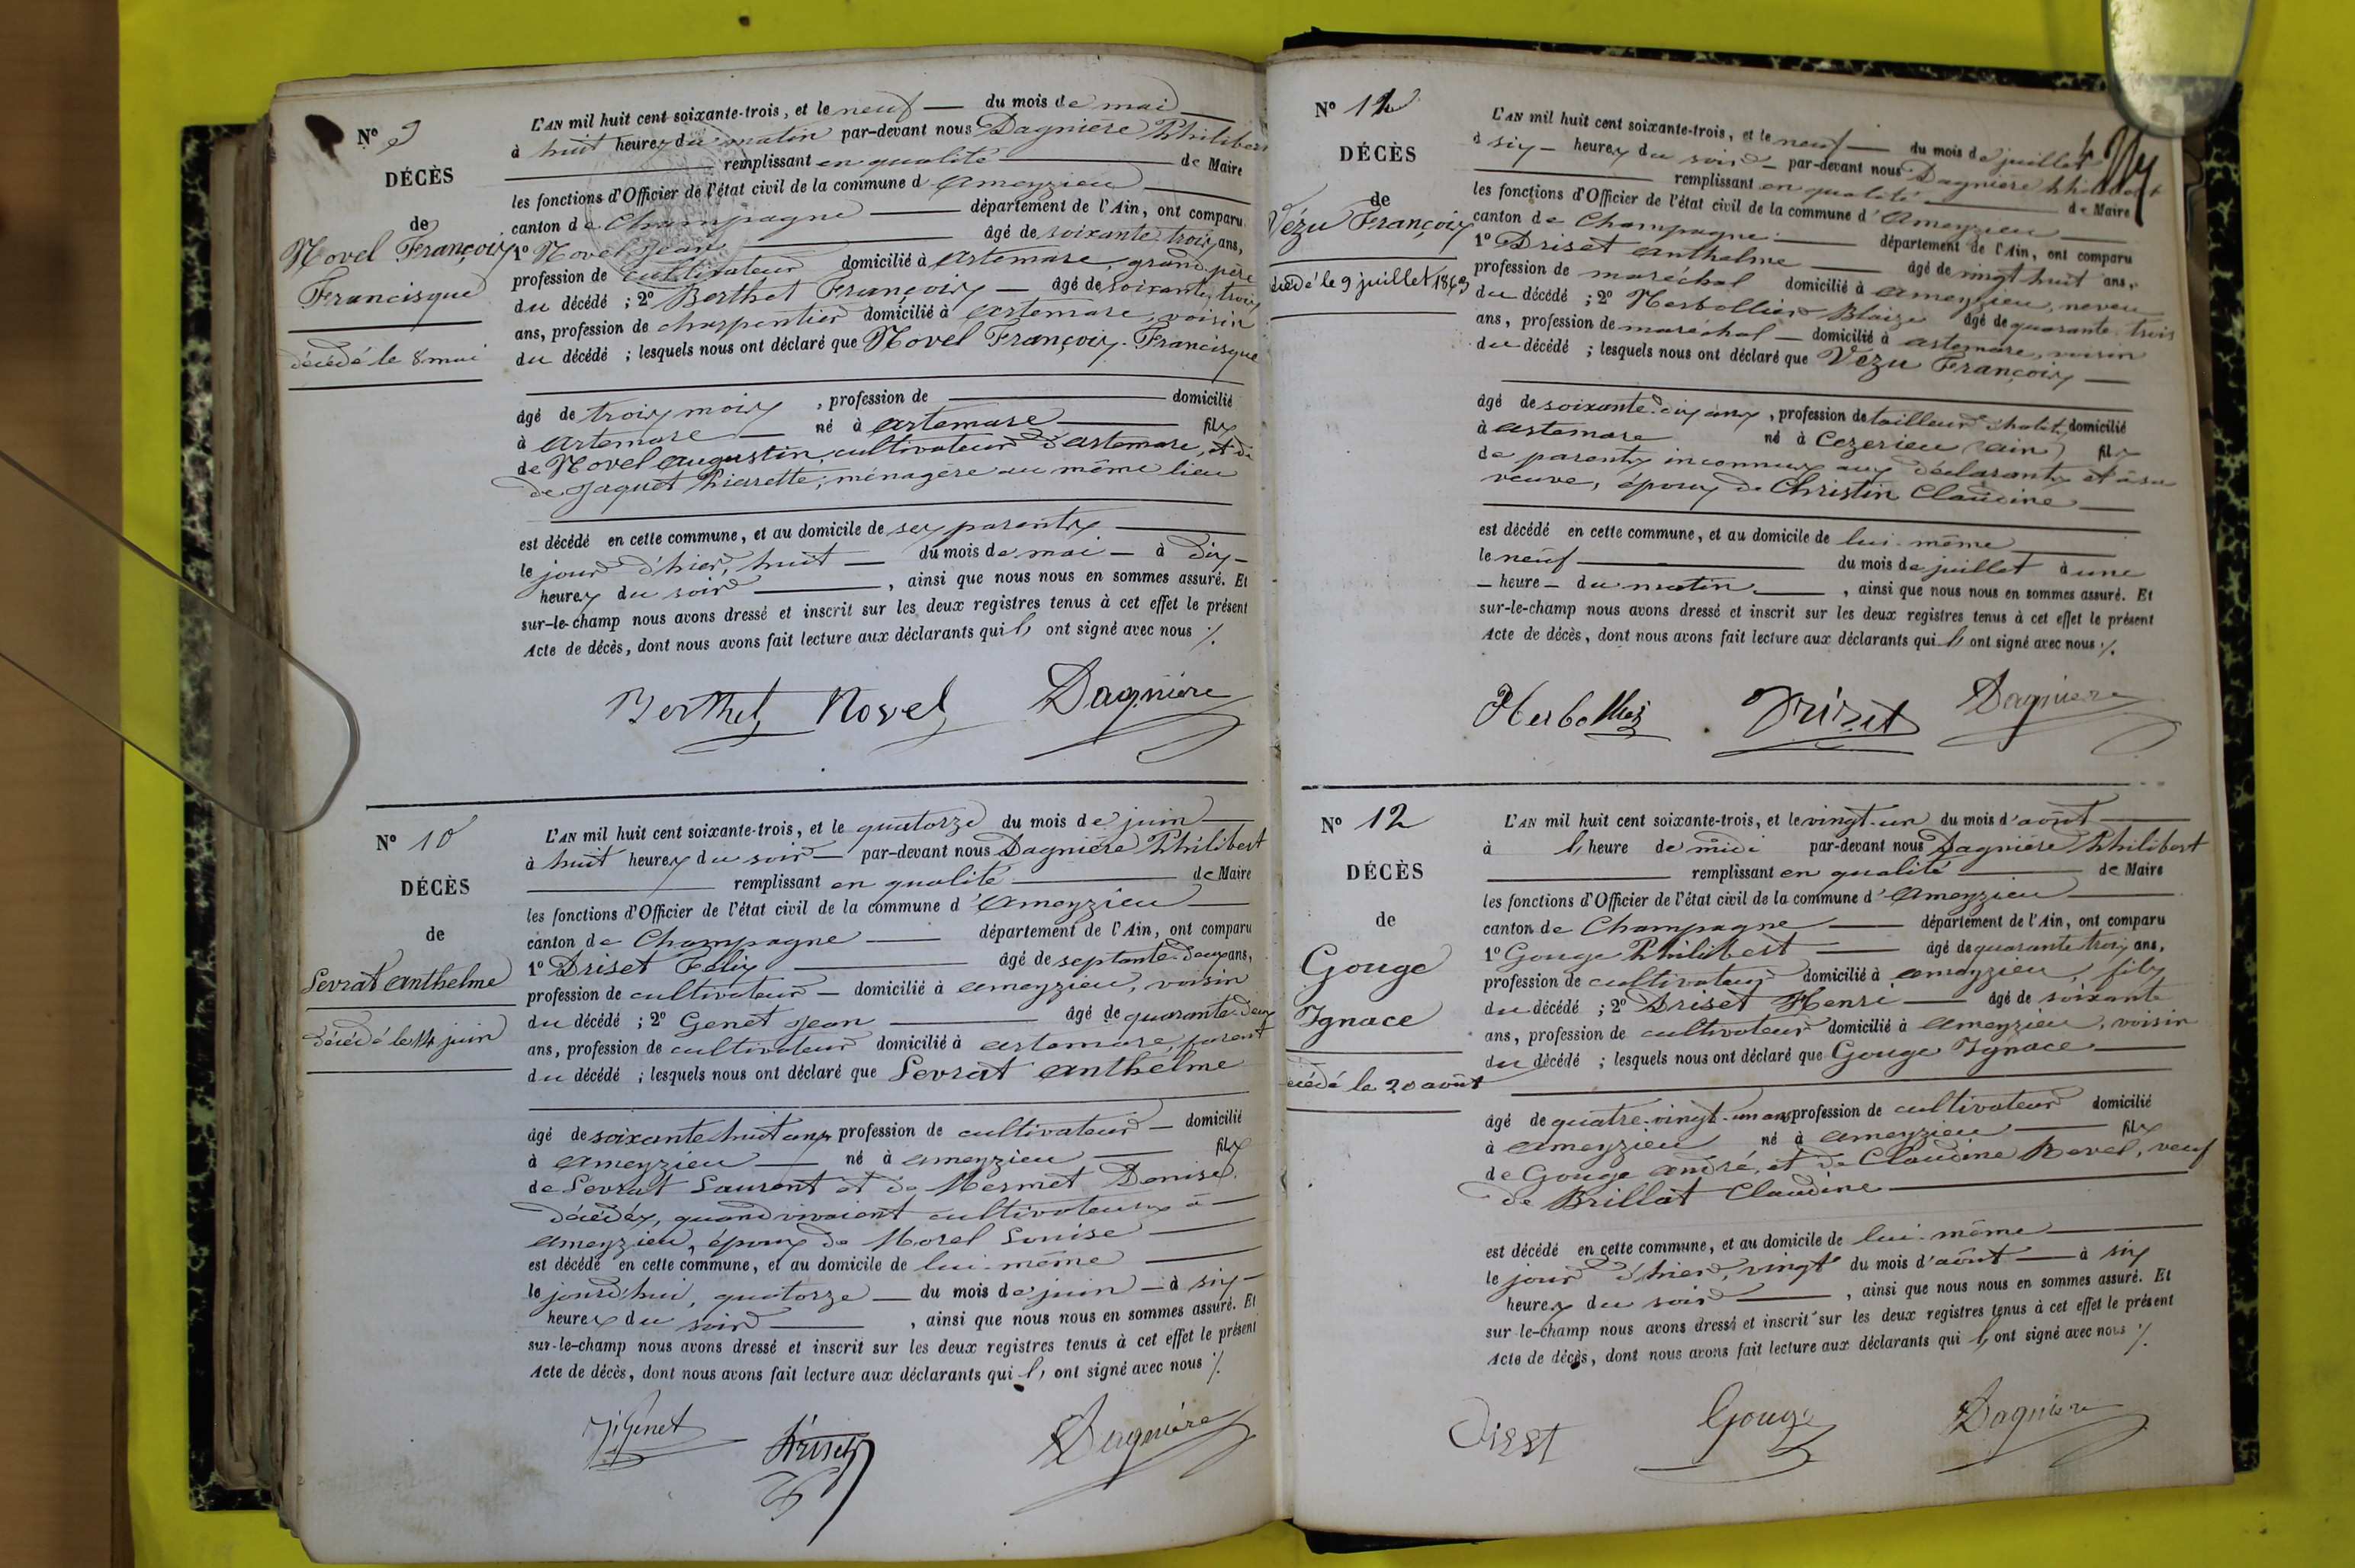 N° 9
DÉCÈS
de
Novel François
Francisque
décédé le 8 mai
L'AN mil huit cent soixante-trois, et le neuf du mois de mai
à huit heures du matin par-devant nous Dagnière Philibert
remplissant en qualité de Maire
les fonctions d'Officier de l'état civil de la commune d'Ameyzieu
canton de Champagne département de l'Ain, ont comparu
1° Novel Jean âgé de soixante trois ans,
profession de cultivateur domicilié à Artemare, grand père
du décédé ; 2° Berthet François âgé de soixante trois
ans, profession de charpentier domicilié à Artemare, voisin
du décédé ; lesquels nous ont déclaré que Novel François-Francisque
âgé de trois mois, profession de domicilié
à Artemare né à Artemare fils
de Novel Augustin, cultivateur à Artemare, et de
de Jaquet Pierrette, ménagère au même lieu
est décédé en cette commune, et au domicile de ses parents
le jour d'hier, huit du mois de mai à dix
heures du soir, ainsi que nous nous en sommes assuré. Et
sur-le-champ nous avons dressé et inscrit sur les deux registres tenus à cet effet le présent
Acte de décès, dont nous avons fait lecture aux déclarants qui l' ont signé avec nous ./.
Berthet Novel Dagnière
N° 10
DÉCÈS
de
Levrat Anthelme
décédé le 14 juin
L'AN mil huit cent soixante-trois, et le quatorze du mois de juin
à huit heures du soir par-devant nous Dagnière Philibert
remplissant en qualité de Maire
les fonctions d'Officier de l'état civil de la commune d'Ameyzieu
canton de Champagne département de l'Ain, ont comparu
1° Driset Félix âgé de septante-deux ans,
profession de cultivateur domicilié à Ameyzieu, voisin
du décédé ; 2° Genet Jean âgé de quarante-deux
ans, profession de cultivateur domicilié à Artemare, parent
du décédé ; lesquels nous ont déclaré que Levrat Anthelme
âgé de soixante huit ans profession de cultivateur domicilié
à Ameyzieu né à Ameyzieu fils
de Levrat Laurent et de Mermet Denise
décédés, quand vivaient cultivateurs à
Ameyzieu, époux de Morel Louise
est décédé en cette commune, et au domicile de lui-même
le jourd'hui, quatorze du mois de juin à six
heures du soir, ainsi que nous nous en sommes assuré. Et
sur-le-champ nous avons dressé et inscrit sur les deux registres tenus à cet effet le présent
Acte de décès, dont nous avons fait lecture aux déclarants qui l' ont signé avec nous ./.
J. Genet Driset Dagnière
N° 11
DÉCÈS
de
Vézu François
décédé le 9 juillet 1863
L'AN mil huit cent soixante-trois, et le neuf du mois de juillet
à six heures du soir par-devant nous Dagnière Philibert
remplissant en qualité de Maire
les fonctions d'Officier de l'état civil de la commune d'Ameyzieu
canton de Champagne département de l'Ain, ont comparu
1° Driset Anthelme âgé de vingt huit ans,
profession de maréchal domicilié à Ameyzieu, neveu
du décédé ; 2° Herbollier Blaize âgé de quarante-trois
ans, profession de maréchal domicilié à Artemare, voisin
du décédé ; lesquels nous ont déclaré que Vezu François
âgé de soixante-dix ans, profession de tailleur d'habits, domicilié
à Artemare né à Cezerieu (Ain) fils
de parents inconnus aux déclarants et à sa
veuve, époux de Christin Claudine
est décédé en cette commune, et au domicile de lui-même
le neuf du mois de juillet à une
heure du matin, ainsi que nous nous en sommes assuré. Et
sur-le-champ nous avons dressé et inscrit sur les deux registres tenus à cet effet le présent
Acte de décès, dont nous avons fait lecture aux déclarants qui l' ont signé avec nous ./.
Herbollier Driset Dagnière
N° 12
DÉCÈS
de
Gouge
Ignace
décédé le 20 août
L'AN mil huit cent soixante-trois, et le vingt-un du mois d'août
à l'heure de midi par-devant nous Dagnière Philibert
remplissant en qualité de Maire
les fonctions d'Officier de l'état civil de la commune d'Ameyzieu
canton de Champagne département de l'Ain, ont comparu
1° Gouge Philibert âgé de quarante trois ans,
profession de cultivateur domicilié à Ameyzieu, fils
du décédé ; 2° Driset Henri âgé de soixante
ans, profession de cultivateur domicilié à Ameyzieu, voisin
du décédé ; lesquels nous ont déclaré que Gouge Ignace
âgé de quatre-vingt-un ans profession de cultivateur domicilié
à Ameyzieu né à Ameyzieu fils
de Gouge André, et de Claudine Revel, veuf
de Brillat Claudine
est décédé en cette commune, et au domicile de lui-même
le jour d'hier, vingt du mois d'août à six
heures du soir, ainsi que nous nous en sommes assuré. Et
sur-le-champ nous avons dressé et inscrit sur les deux registres tenus à cet effet le présent
Acte de décès, dont nous avons fait lecture aux déclarants qui l' ont signé avec nous ./.
Gouge Dagnière